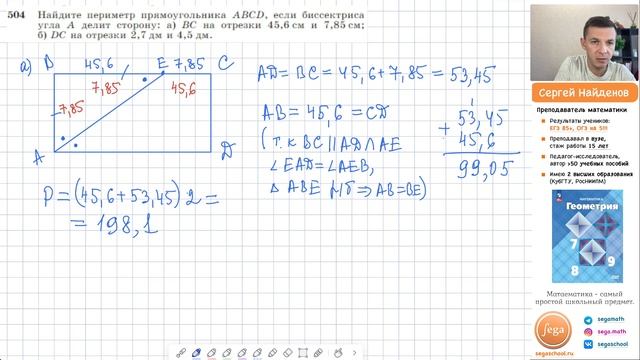 504 Найдите периметр прямоугольника ABCD, если биссектриса
угла A делит сторону: а) BC на отрезки 45,6 см и 7,85 см;
б) DC на отрезки 2,7 дм и 4,5 дм.
а) B 45,6 E 7,85 C
7,85 45,6
7,85
A D
P = (45,6 + 53,45) 2 =
= 198,1
AD = BC = 45,6 + 7,85 = 53,45
AB = 45,6 = CD
(т.к BC || AD ∩ AE
∠EAD = ∠AEB,
△ABE р/б ⇒ AB = BE)
1
53,45
+
45,6
99,05
Сергей Найденов
Преподаватель математики
Результаты учеников:
ЕГЭ 85+, ОГЭ на 5!!!
Преподавал в вузе,
стаж работы 15 лет
Педагог-исследователь,
автор >50 учебных пособий
Имею 2 высших образования
(КубГУ, РосНИИМ)
МАТЕМАТИКА
Геометрия
7
8
9
Математика - самый
простой школьный предмет.
Sega
segamath
sega.math
segaschool.ru